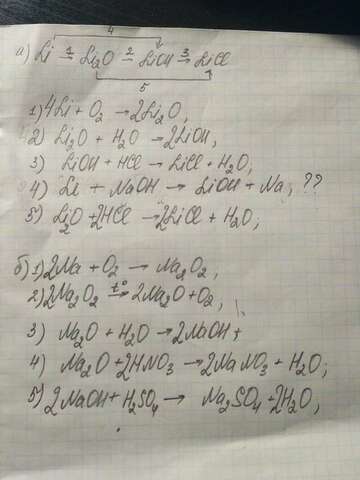 4
а) Li 1→ Li₂O 2→ LiOH 3→ LiCl
5
1) 4Li + O₂ → 2Li₂O,
2) Li₂O + H₂O → 2LiOH,
3) LiOH + HCl → LiCl + H₂O,
4) Li + NaOH → LiOH + Na; ??
5) Li₂O + 2HCl → 2LiCl + H₂O;
б) 1) 2Na + O₂ → Na₂O₂,
2) 2Na₂O₂ t°→ 2Na₂O + O₂,
3) Na₂O + H₂O → 2NaOH;
4) Na₂O + 2HNO₃ → 2NaNO₃ + H₂O;
5) 2NaOH + H₂SO₄ → Na₂SO₄ + 2H₂O,